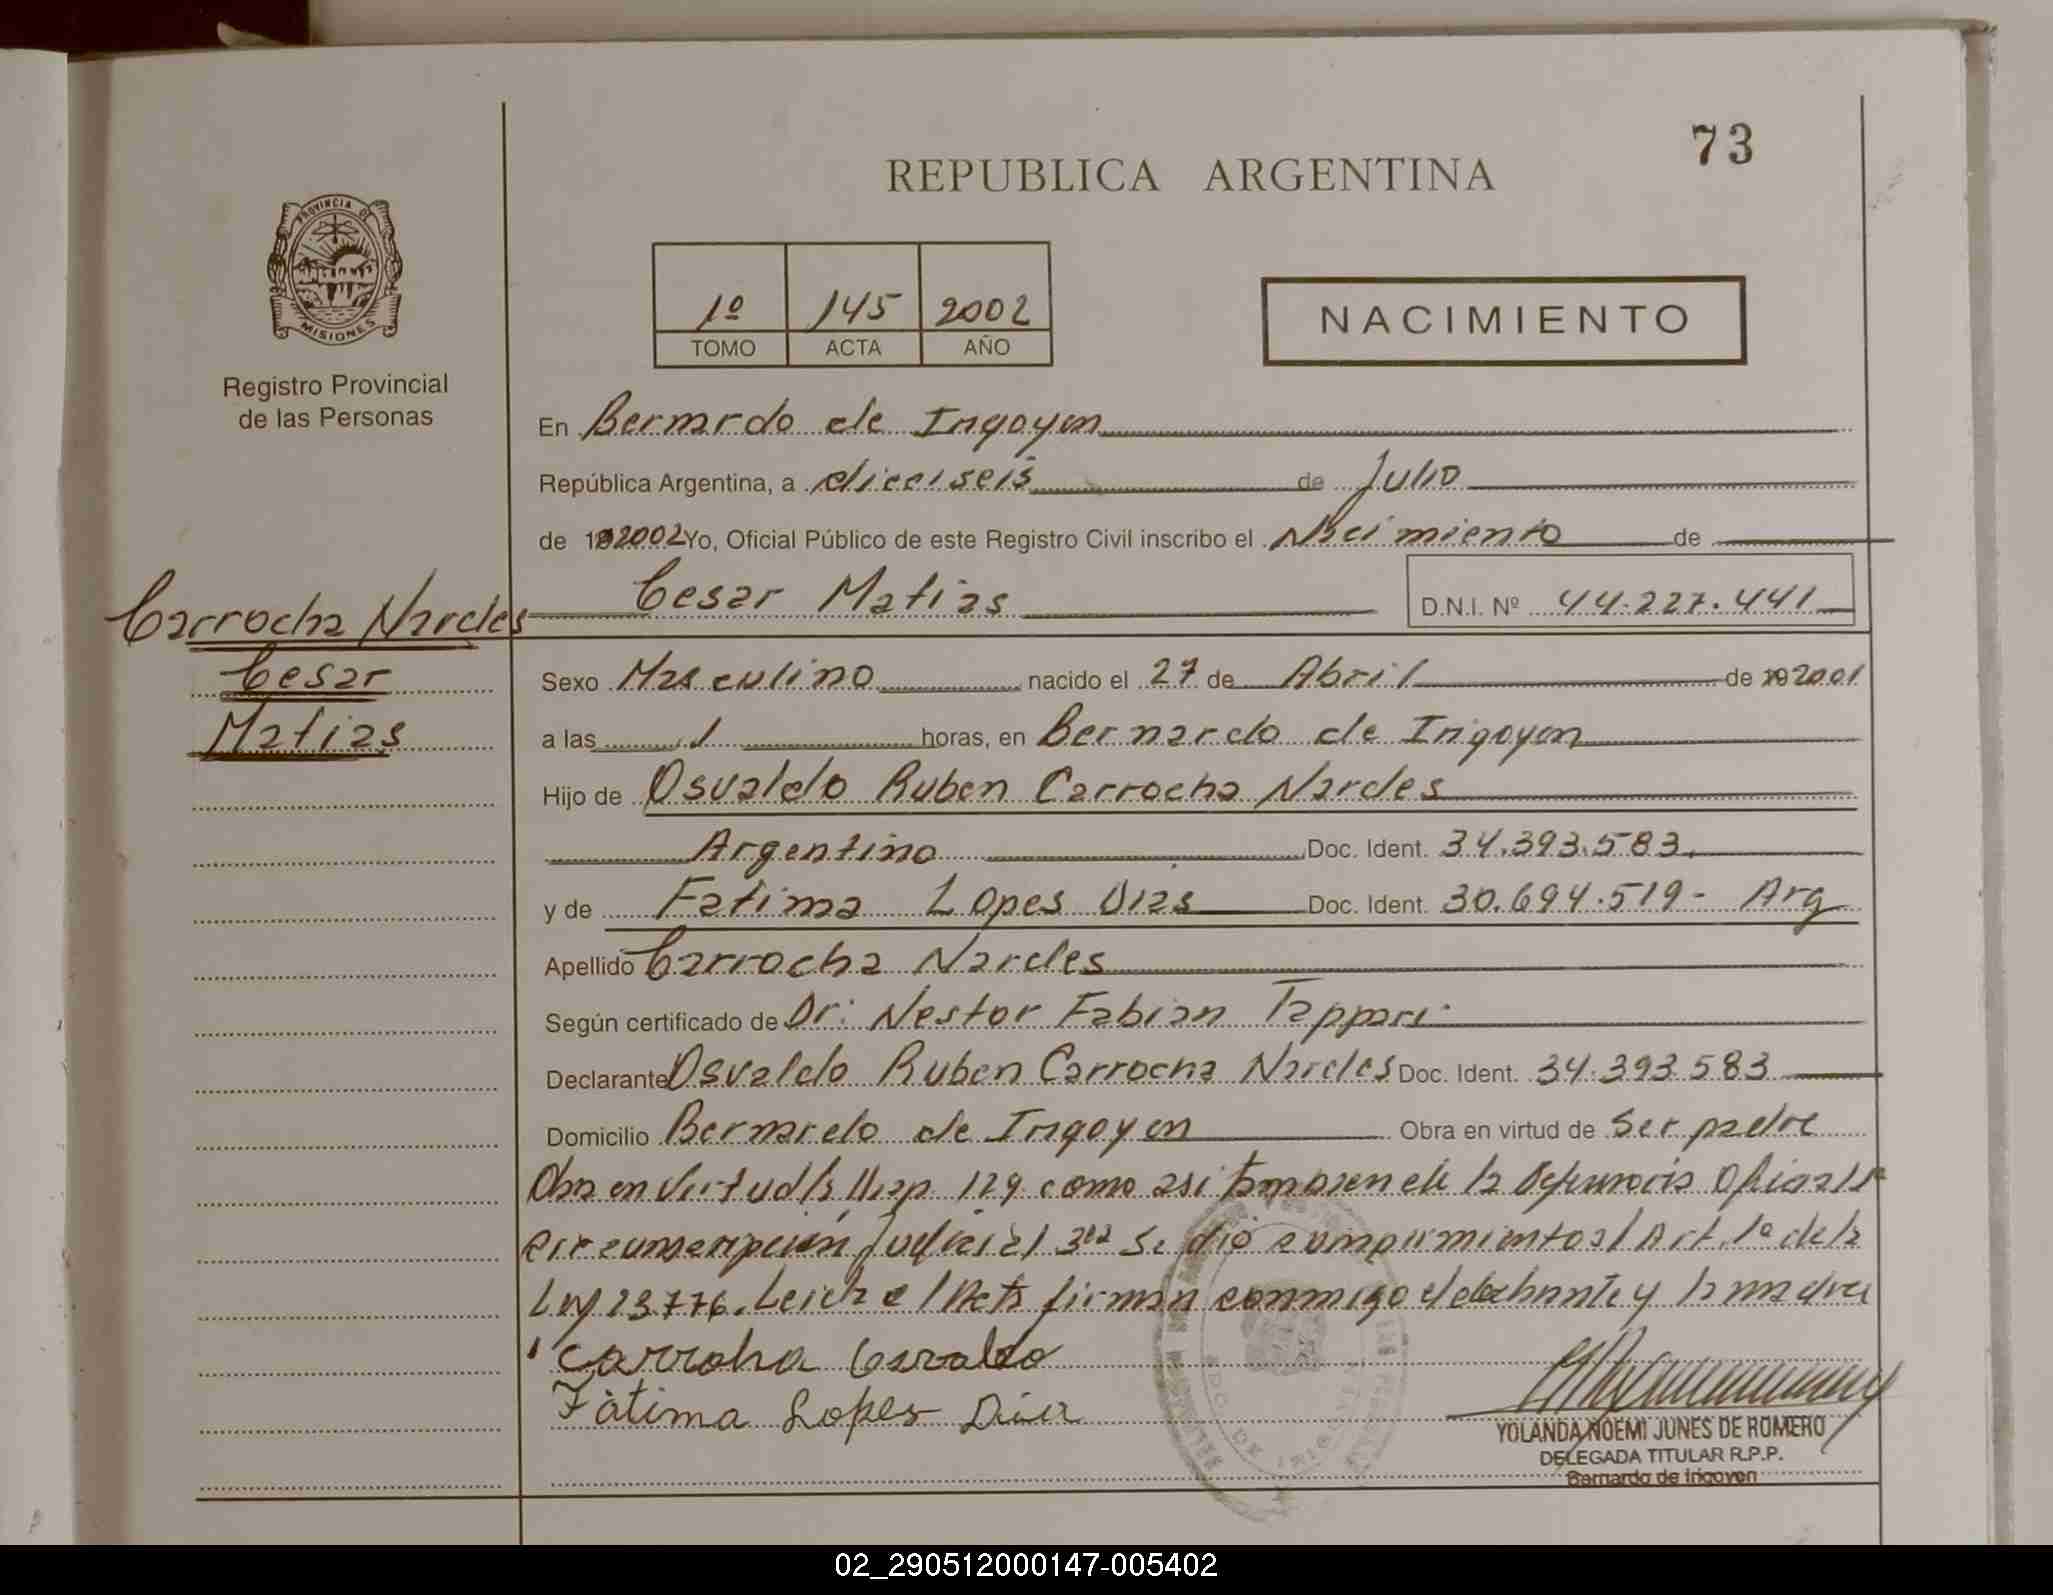 73
REPUBLICA ARGENTINA
PROVINCIA DE
MISIONES
Registro Provincial
de las Personas
1º 145 2002
TOMO ACTA AÑO
NACIMIENTO
En Bernardo de Irigoyen
República Argentina, a dieciseis de Julio
de 2002 Yo, Oficial Público de este Registro Civil inscribo el Nacimiento de
Cesar Matias D.N.I. Nº 44.227.441
Carrocha Nardes
Cesar
Matias
Sexo Masculino nacido el 27 de Abril de 2001
a las 1 horas, en Bernardo de Irigoyen
Hijo de Osvaldo Ruben Carrocha Nardes
Argentino Doc. Ident. 34.393.583
y de Fatima Lopes Dias Doc. Ident. 30.694.519- Arg
Apellido Carrocha Nardes
Según certificado de Dr: Nestor Fabian Tappari
Declarante Osvaldo Ruben Carrocha Nardes Doc. Ident. 34.393.583
Domicilio Bernardo de Irigoyen Obra en virtud de Ser padre
Obra en virtud la Disp. 129 como asi tambien de la Defensoria Oficial
circunscripción Judicial 3ra Se dio cumplimiento al Art. 1º de la
Ley 23.776. Leida el Acta firman conmigo el declarante y la madre
Carroha Osvaldo
Fàtima Lopes Dias
YOLANDA NOEMI JUNES DE ROMERO
DELEGADA TITULAR R.P.P.
Bernardo de Irigoyen
02_290512000147-005402